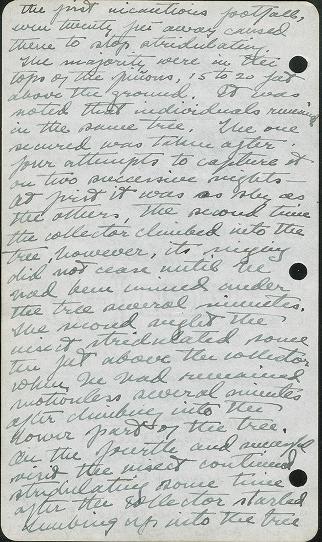 the first incautious footfall,
even twenty feet away caused
them to stop stridulating.
The majority were in the
tops of the piñons, 15 to 20 feet
above the ground. It was
noted that individuals remain
in the same tree. The one
secured was taken after
four attempts to capture it
on two successive nights
At first it was as shy as
the others, the second time
the collector climbed into the
tree, however, its singing
did not cease until he
had been under
the tree several minutes.
The second night the
insect stridulated some
ten feet above the collector
when he had remained
motionless several minutes
after climbing into the
lower part of the tree.
On the fourth and successful
visit the insect continued
stridulating some time
after the collector started
climbing up into the tree